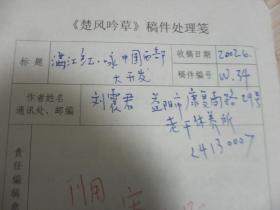 《楚风吟草》稿件处理笺
标题 满江红·咏中国西部大开发 收稿日期 2002.6.
稿件编号 W.34
作者姓名 通讯处、邮编 刘震君 益阳市康复南路29号
老干休养所
413000
责任编辑
刊用